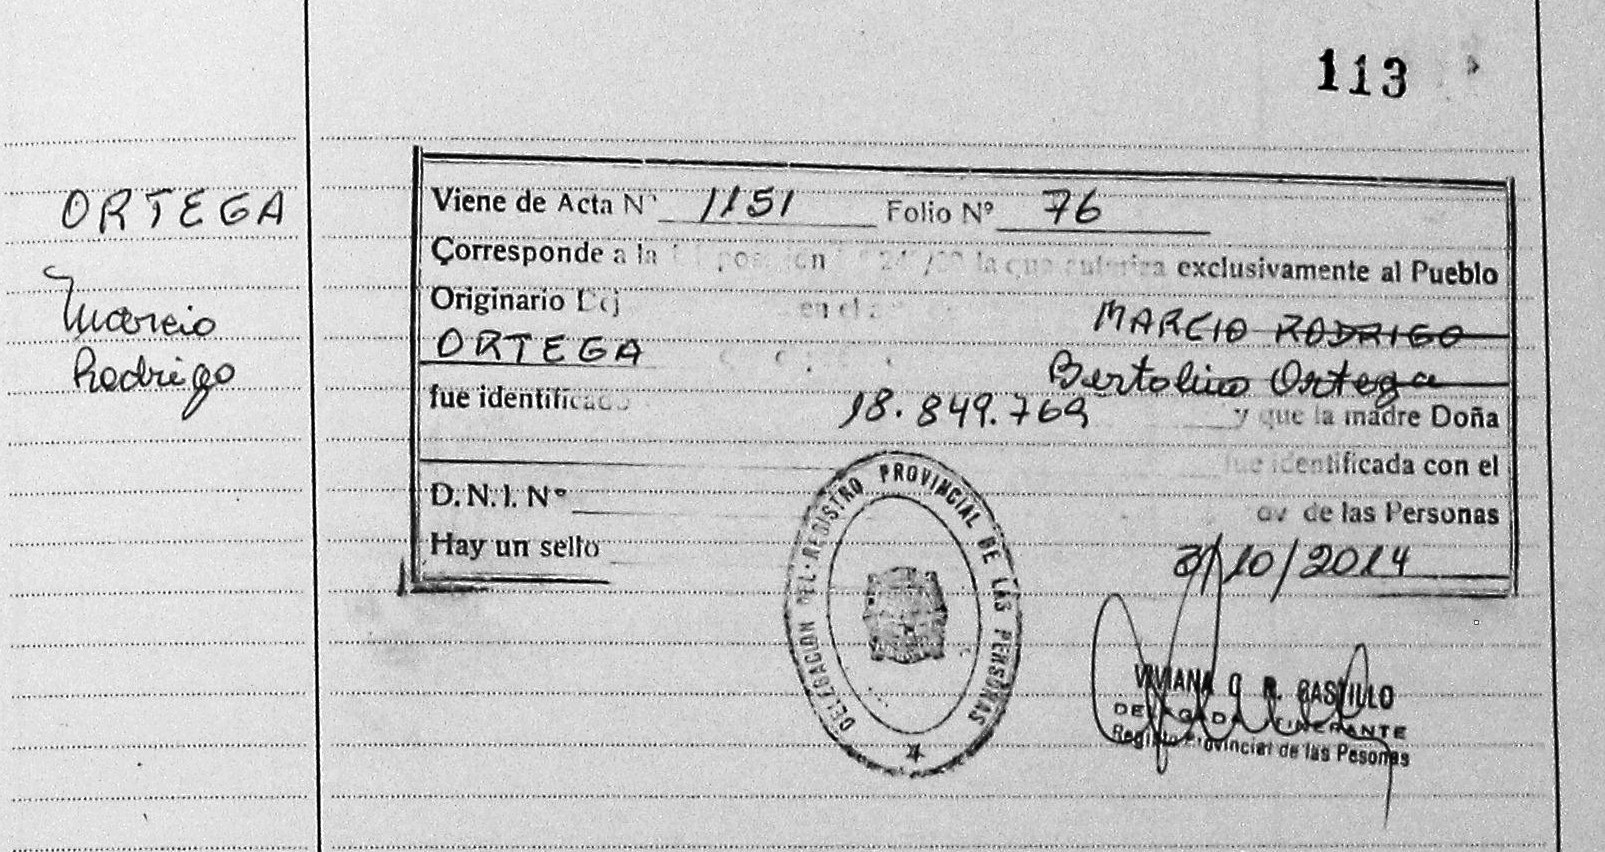 113
ORTEGA
Marcio
Rodrigo
Viene de Acta Nº 1151 Folio Nº 76
Corresponde a la la que autoriza exclusivamente al Pueblo
Originario en el MARCIO RODRIGO
ORTEGA Bertolino Ortega
fue identificado 18.849.769 y que la madre Doña
fue identificada con el
D.N.I. Nº de las Personas
Hay un sello /10/2014
DELEGACION DEL REGISTRO PROVINCIAL DE LAS PERSONAS
VIVIANA CASTILLO
Registro Provincial de las Pesonas